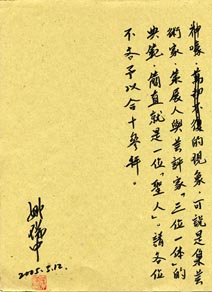 神喙，荒神不復的現象，可說是集芸
術家、策展人與芸評家“三位一体”的
典範，簡直就是一位“聖人”。請各位
不吝予以合十參拜。
姚瑞中
2005.5.12.